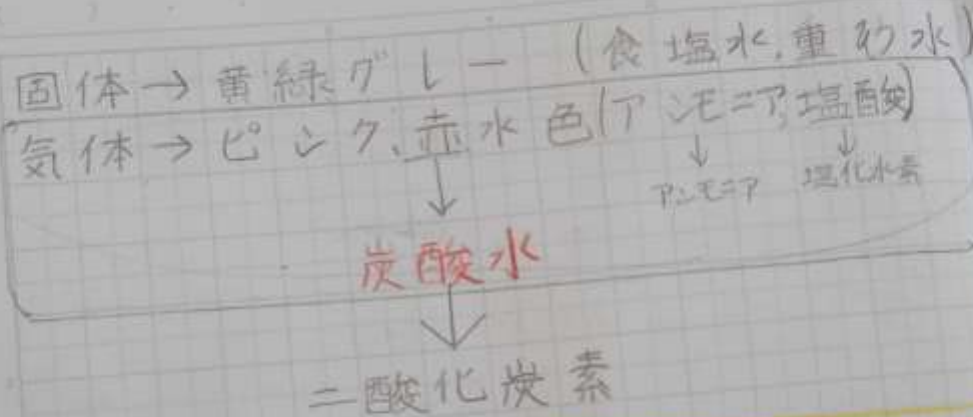 固体→黄緑グレー (食塩水,重そう水)
気体→ピンク、赤水色(アンモニア,塩酸)
↓ ↓ ↓
アンモニア 塩化水素
炭酸水
↓
二酸化炭素